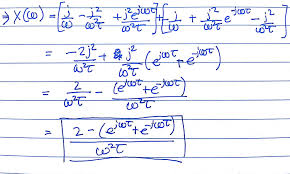 ⇒ X(ω) = [j/ω - j²/ω²τ + j²e^{jωτ}/ω²τ] + [-j/ω + j²/ω²τ e^{-jωτ} - j²/ω²τ]
= -2j²/ω²τ + j²/ω²τ (e^{jωτ} + e^{-jωτ})
= 2/ω²τ - (e^{jωτ} + e^{-jωτ})/ω²τ
= 2 - (e^{jωτ} + e^{-jωτ})/ω²τ